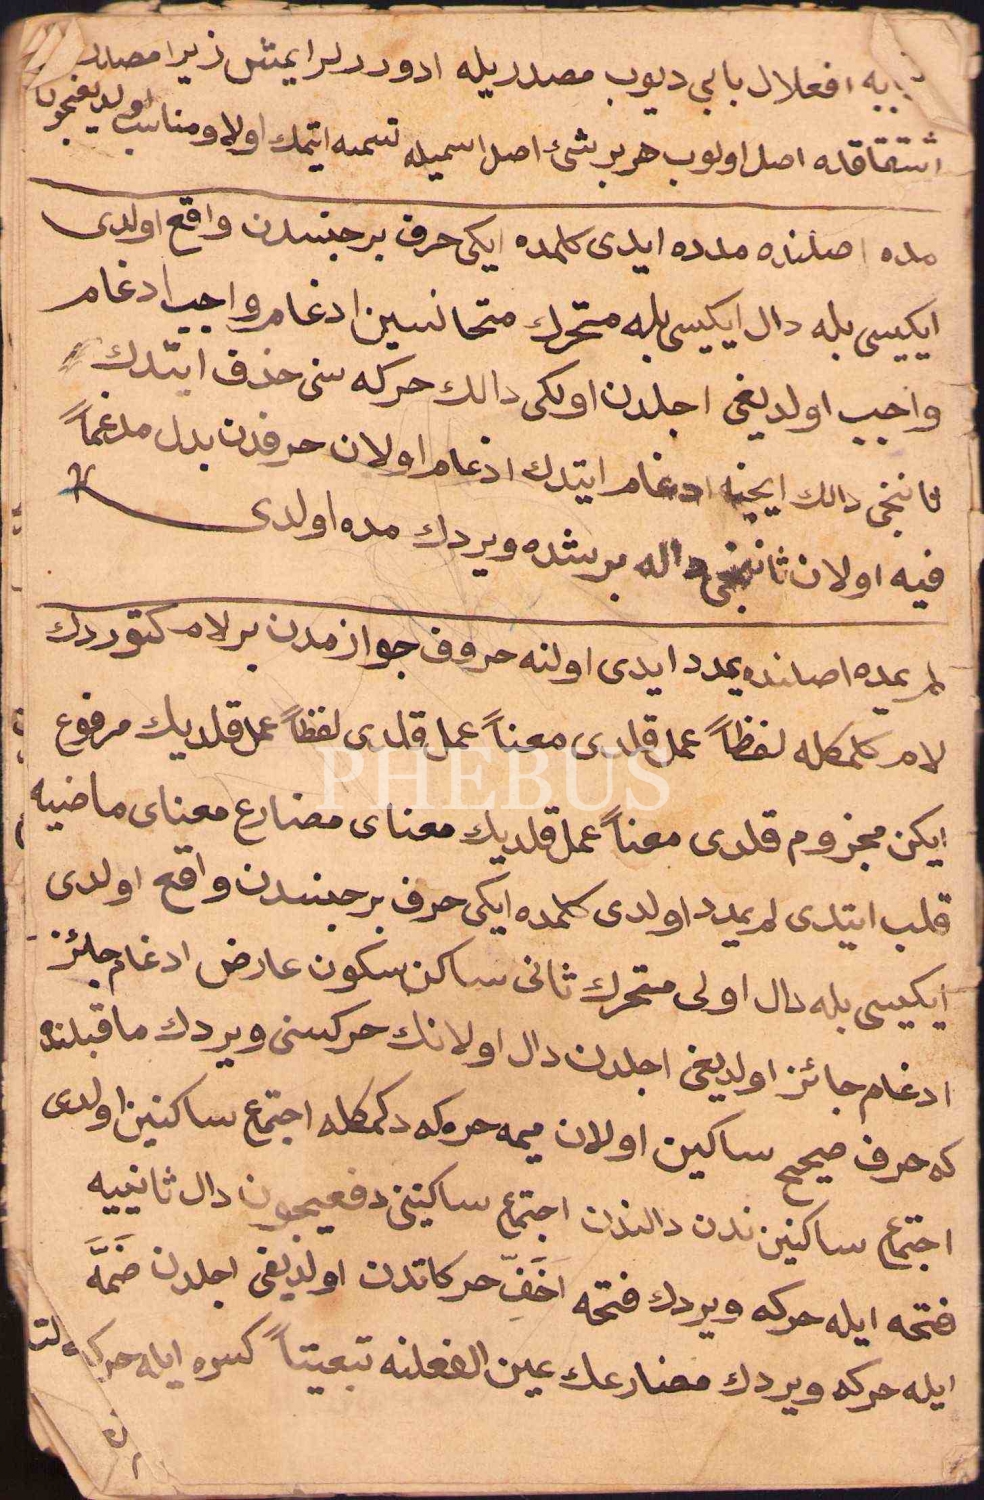 بابه افعلال بابی دیوب مصدریله ادوررلر ایمش زیرا مصادر
اشتقاقده اصل اولوب هر بر شئ اصل اسمیله تسمیه ایتمك اولا ومناسب اولدیغیچون
مده اصلنده مدده ایدی كلمده ایكی حرف بر جنسدن واقع اولدی
ایكیسی بله دال ایكیسی بله متحرك متجانسین ادغام واجب ادغام
واجب اولدیغی اجلدن اولكی دالك حركه سنی حذف ایتدك
ثانیجی دالك ایچنه ادغام ایتدك ادغام اولان حرفدن بدل مدغماً
فیه اولان ثانیجی داله بر شده ویردك مده اولدی
لم یمده اصلنده یمدد ایدی اولنه حروف جوازمدن بر لام كتوردك
لام كلمكله لفظاً عمل قلدی معناً عمل قلدی لفظاً عمل قلدیك مرفوع
ایكن مجزوم قلدی معناً عمل قلدیك معنای مضارع معنای ماضیه
قلب ایتدی لم یمدد اولدی كلمده ایكی حرف بر جنسدن واقع اولدی
ایكیسی بله دال اولی متحرك ثانی ساكن سكون عارض ادغام جائز
ادغام جائز اولدیغی اجلدن دال اولانك حركسنی ویردك ماقبلنده
كه حرف صحیح ساكین اولان میمه حركه دكمكله اجتماع ساكنین اولدی
اجتماع ساكنین ندن دالندن اجتماع ساكنینی دفعیچون دال ثانییه
فتحه ایله حركه ویردك فتحه اَخَفّ حركاتدن اولدیغی اجلدن ضَمَّه
ایله حركه ویردك مضارعك عین الفعلنه تبعیتاً كسره ایله حركه
PHEBUS